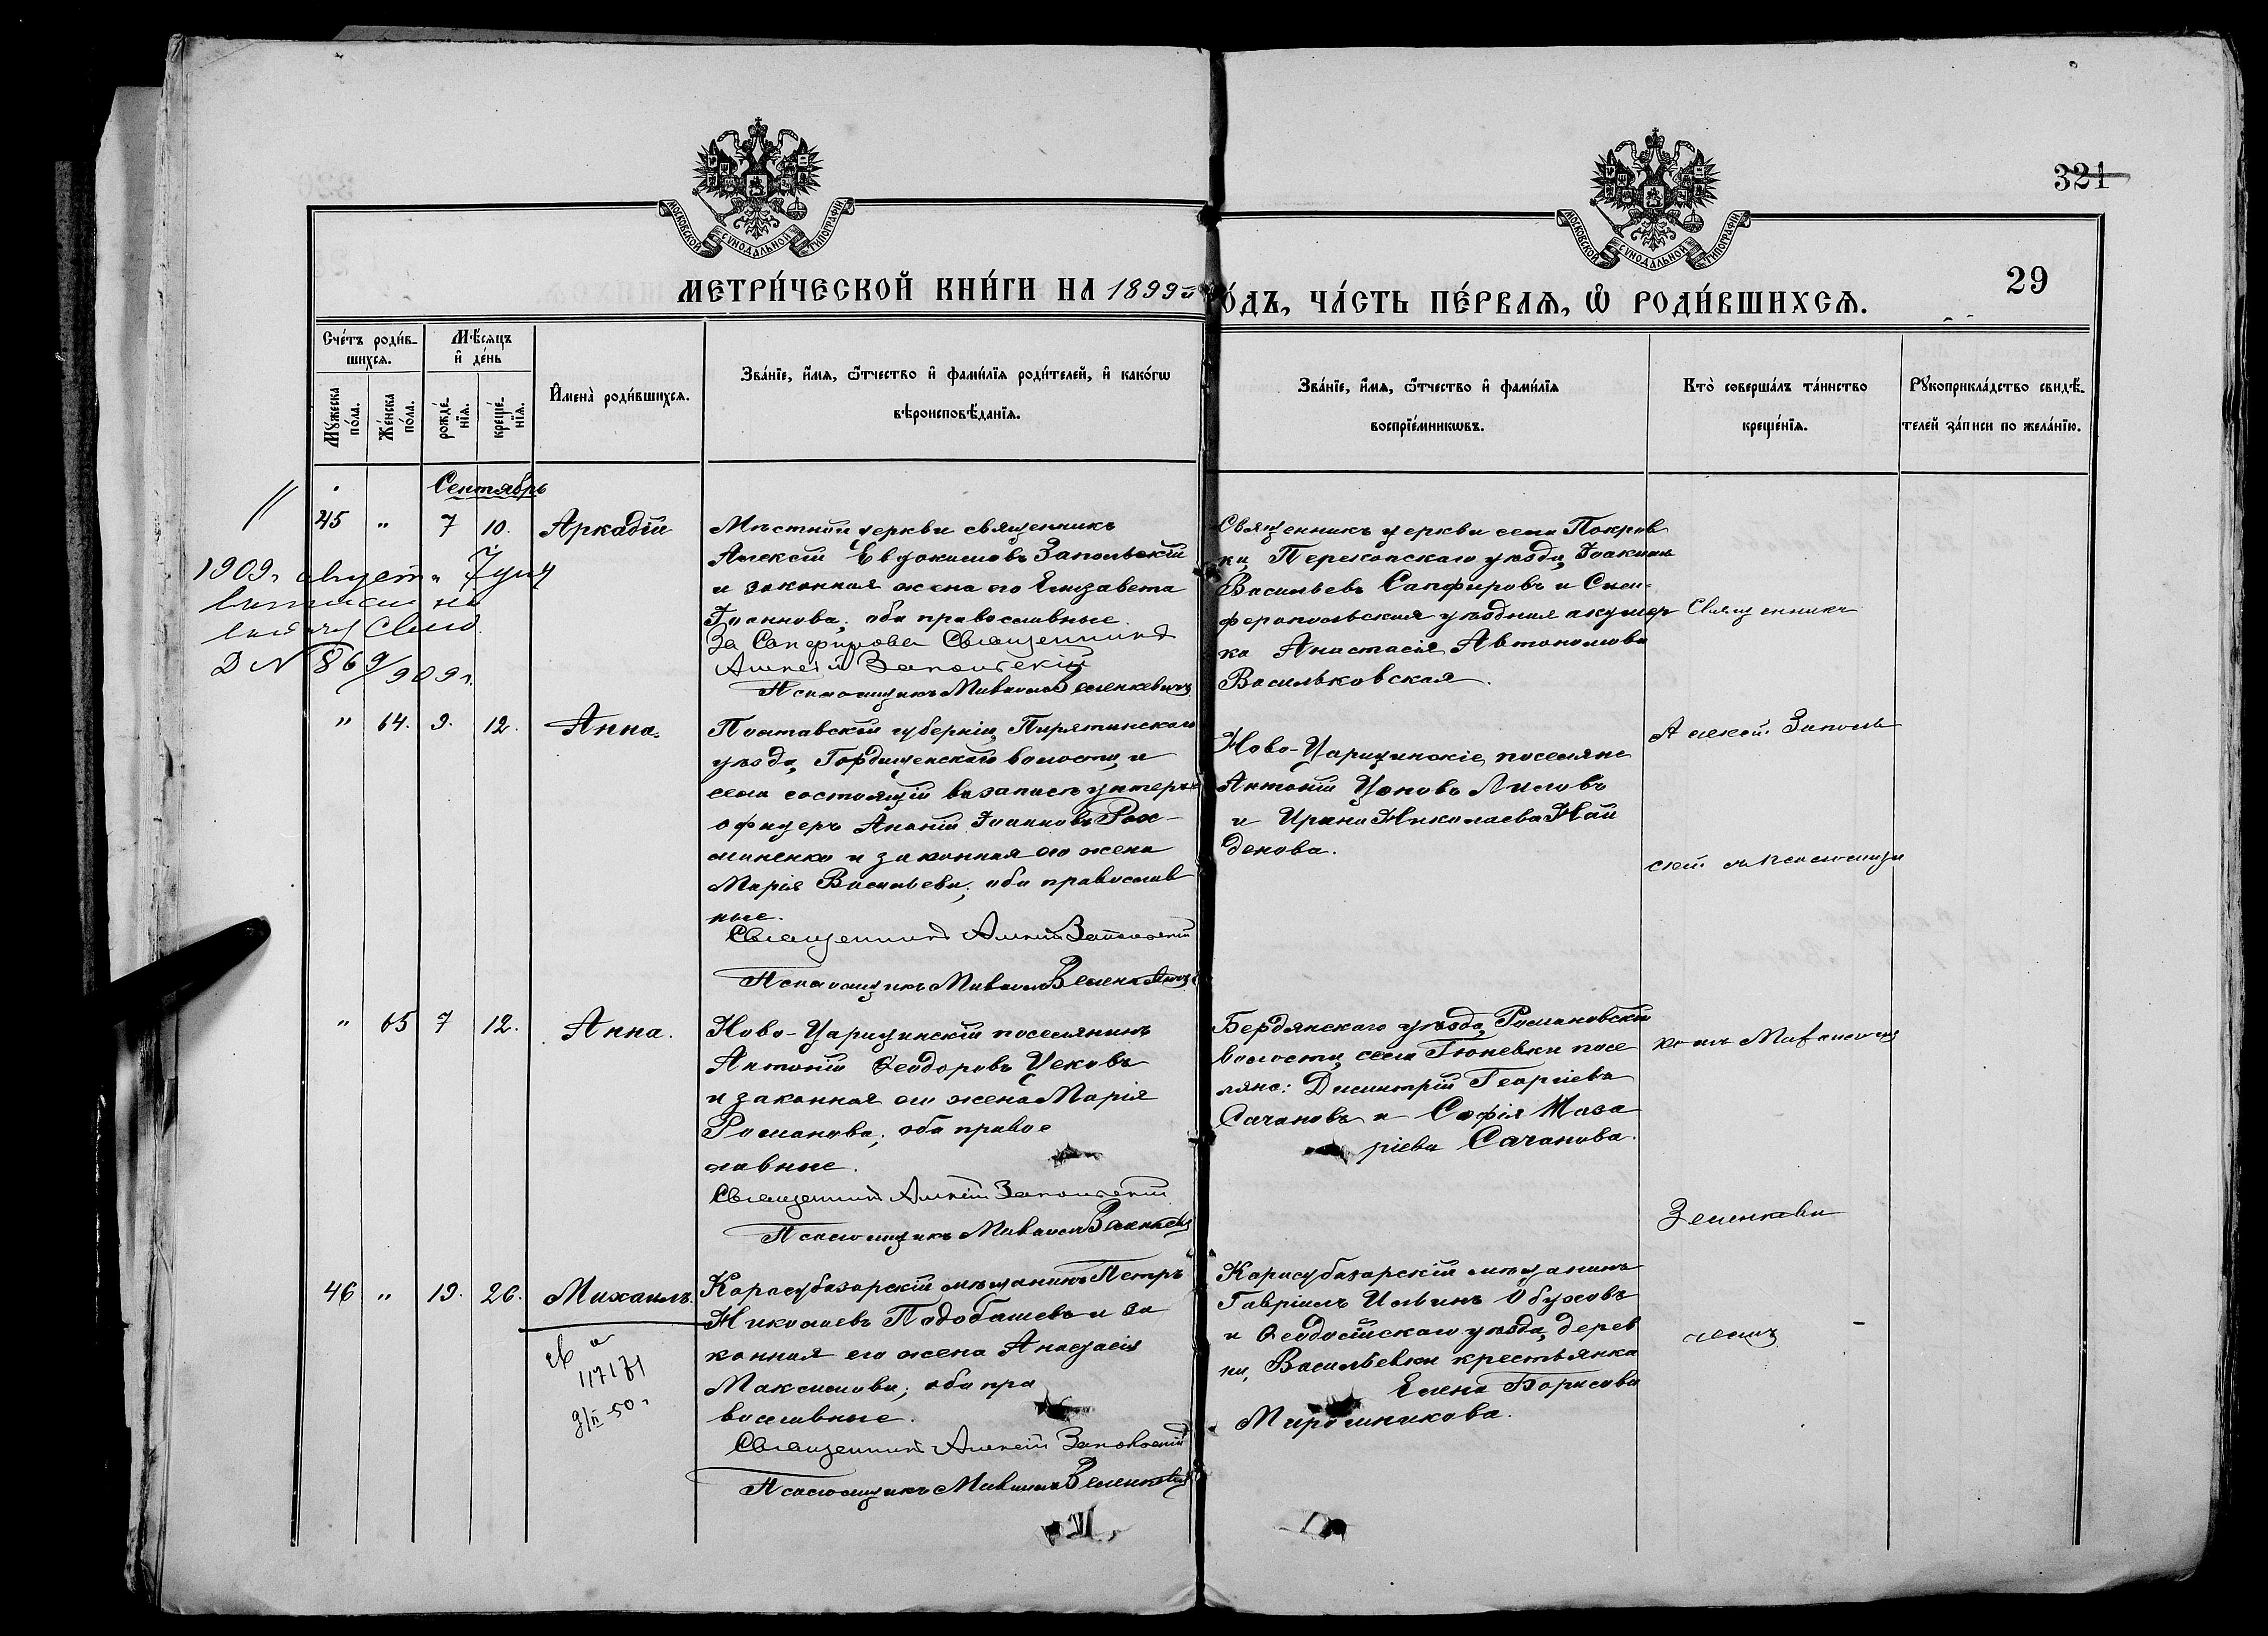 321
29
МОСКОВСКОЙ СѴНОДАЛЬНОЙ ТИПОГРАФІИ
МОСКОВСКОЙ СѴНОДАЛЬНОЙ ТИПОГРАФІИ
МЕТРИ́ЧЕСКОЙ КНИ́ГИ НА 1899й ГО́ДЪ, ЧА́СТЬ ПЕ́РВАѦ, Ѡ҆ РОДИ́ВШИХСѦ.
Сче́тъ роди́в-
шихсѧ.
Мꙋ́жеска
по́ла.
Же́нска
по́ла.
Мѣ́сѧцъ
и҆ де́нь
рожде́-
нїѧ.
креще́-
нїѧ.
И҆мена̀ роди́вшихсѧ.
Зва́нїе, и҆́мѧ, ѻ҆́тчество и҆ фами́лїѧ роди́телей, и҆ како́гѡ
вѣроисповѣ́данїѧ.
Зва́нїе, и҆́мѧ, ѻ҆́тчество и҆ фами́лїѧ
воспрїе́мникѡвъ.
Кто̀ соверша́лъ та́инство
креще́нїѧ.
Рꙋкоприкла́дство свидѣ́-
телей за́писи по жела́нїю.
Сентябрь
45 " 7 10. Аркадій
Мѣстной церкви священникъ
Алексій Евдокимовъ Запольскій
и законная жена его Елизавета
Іоаннова; оба православные.
За Сапфирова Священникъ
Алексій Запольскій
Псаломщикъ Михаилъ Зеленкевичъ
Священникъ церкви села Покров
ки, Перекопскаго уѣзда, Іоакимъ
Васильевъ Сапфировъ и Сим-
феропольская уѣздная акушер
ка Анастасія Автономова
Васильковская.
1909г августа 7 дня
выписи
Д N 869/909г.
" 64. 9. 12. Анна.
Полтавской губерніи, Пирятинскаго
уѣзда, Гордищенской волости, и
села состоящій въ запасѣ унтеръ-
офицеръ Ананій Іоанновъ Рох-
маненко и законная его жена
Марія Васильева; оба православ
ные.
Священникъ Алексій Запольскій
Псаломщикъ Михаилъ Зеленкевичъ
Ново-Царицинскіе поселяне
Антоній Цоновъ Лиловъ
и Ирина Николаева Най
денова.
" 65 7 12. Анна.
Ново-Царицинскій поселянинъ
Антоній Ѳеодоровъ Цековъ
и законная его жена Марія
Романова; оба правос
лавные.
Священникъ Алексій Запольскій
Псаломщикъ Михаилъ Зеленкевичъ
Бердянскаго уѣзда, Романовской
волости, села Гюневки посе
ляне: Димитрій Георгіевъ
Сачановъ и Софія Маза
ріева Сачанова.
46 " 19. 26. Михаилъ.
Карасубазарскій мѣщанинъ Петръ
Николаевъ Подобашевъ и за
конная его жена Анастасія
Максимова; оба пра
вославные.
Священникъ Алексій Запольскій
Псаломщикъ Михаилъ Зеленкевичъ
Карасубазарскій мѣщанинъ
Гавріилъ Ильинъ Обуховъ
и Ѳеодосійскаго уѣзда, дерев
ни, Васильевки крестьянка
Елена Борисова
Мирошникова.
117171
9/II-50г
Священникъ
Алексій Заполь
скій съ псаломщи
комъ Михаиломъ
Зеленкеви
чемъ